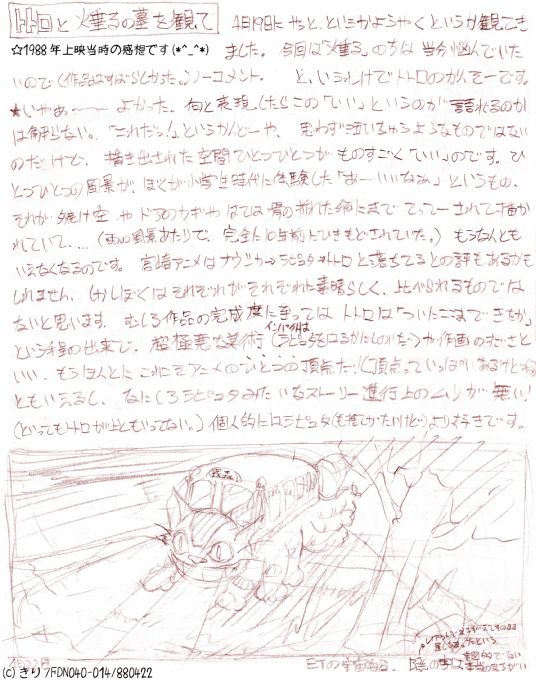 トトロと火垂るの墓を観て
4月19日に やっと、というかようやくというか観てき
☆1988年上映当時の感想です(*^_^*)
ました。今回は「火垂る」の方は 当分悩んでいた
いので(作品はすばらしかった。)ノーコメント。 と、いうわけでトトロのかんそーです。
★いやぁ〜〜 よかった。何と表現したらこの「いい」というのが 語れるのか
は解らない。「これだっ!」というかんどーや、思わず泣いちゃうようなものではない
のだけど、描き出された空間ひとつひとつが ものすごく「いい」のです。ひ
とつひとつの風景が、ぼくが小学生時代に体験した「あーいいなぁ」というもの、
それが夕焼け空や ドアのカギや はては骨の折れた傘にまで てってーされて描か
れていて… (雨の風景あたりで、完全に10年前にひきもどされていた。) もうなんとも
いえなくなるのです。宮崎アニメは ナウシカ→ラピュタ→トトロと落ちてるとの評もあるかも
しれません、しかしぼくは それぞれが それぞれに素晴らしく、比べられるものでは
ないと思います。むしろ作品の完成度に至っては トトロは「ついにここまできたか」
という程の出来で、超極悪な美術
いい、もうほんとに これこそアニメのひとつの頂点だ!
ともいえるし、なにしろラピュタみたいなストーリー進行上のムリが 無い!
(といってもトトロが上ともいってない。) 個人的にトトロはラピュタ
より好きです。
(c) きり 7FDN040-014/880422